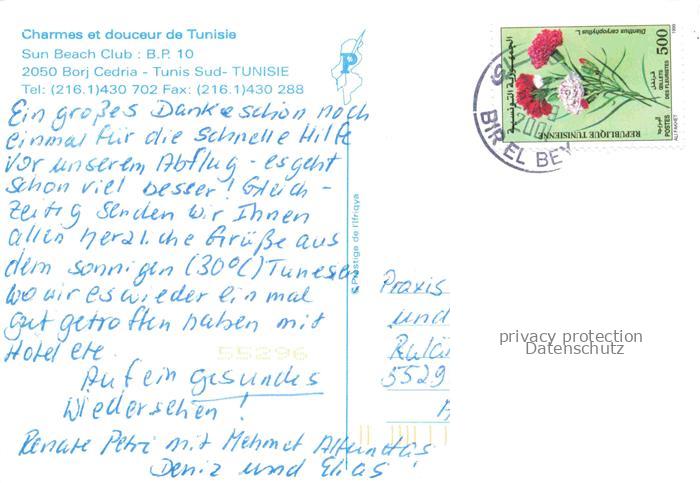 Charmes et douceur de Tunisie
Sun Beach Club : B.P. 10
2050 Borj Cedria - Tunis Sud- TUNISIE
Tel: (216.1)430 702 Fax: (216.1)430 288
P
Ein großes Dankeschön noch
einmal für die schnelle Hilfe
vor unserem Abflug - es geht
schon viel besser! Gleich-
zeitig senden wir Ihnen
allen herzliche Grüße aus
dem sonnigen (30°C) Tunesien
wo wir es wieder einmal
gut getroffen haben mit
Hotel etc.
Auf ein gesundes
Wiedersehen!
Renate Petri mit Mehmet
Deniz und Elias
55296
Prestige de l'Ifriqya
Praxis
und
5529
privacy protection
Datenschutz
Dianthus caryophyllus L.
500
1999
قرنفل
ŒILLETS
DES FLEURISTES
الجمهورية التونسية
REPUBLIQUE TUNISIENNE
POSTES
BIR EL BEY